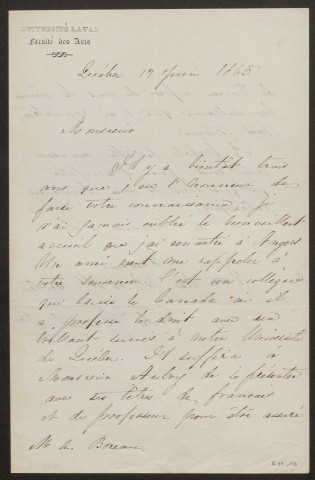 UNIVERSITÉ LAVAL
Faculté des Arts
Québec 17 juin 1865
Monsieur
Il y a bientôt trois
ans que j'eus l'honneur de
faire votre connaissance, je
n'ai jamais oublié le bienveillant
accueil que j'ai rencontré à Angers
Un ami veut me rappeler à
votre souvenir. C'est un collègue
qui laisse le Canada où il
a professé le droit avec un
brillant succès à notre Université
de Québec. Il suffira à
Monsieur Aubry de se présenter
avec ses titres de français
et de professeur pour être assuré
M. A. Boreau